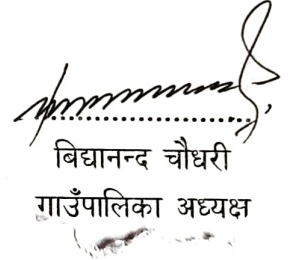 बिद्यानन्द चौधरी
गाउँपालिका अध्यक्ष